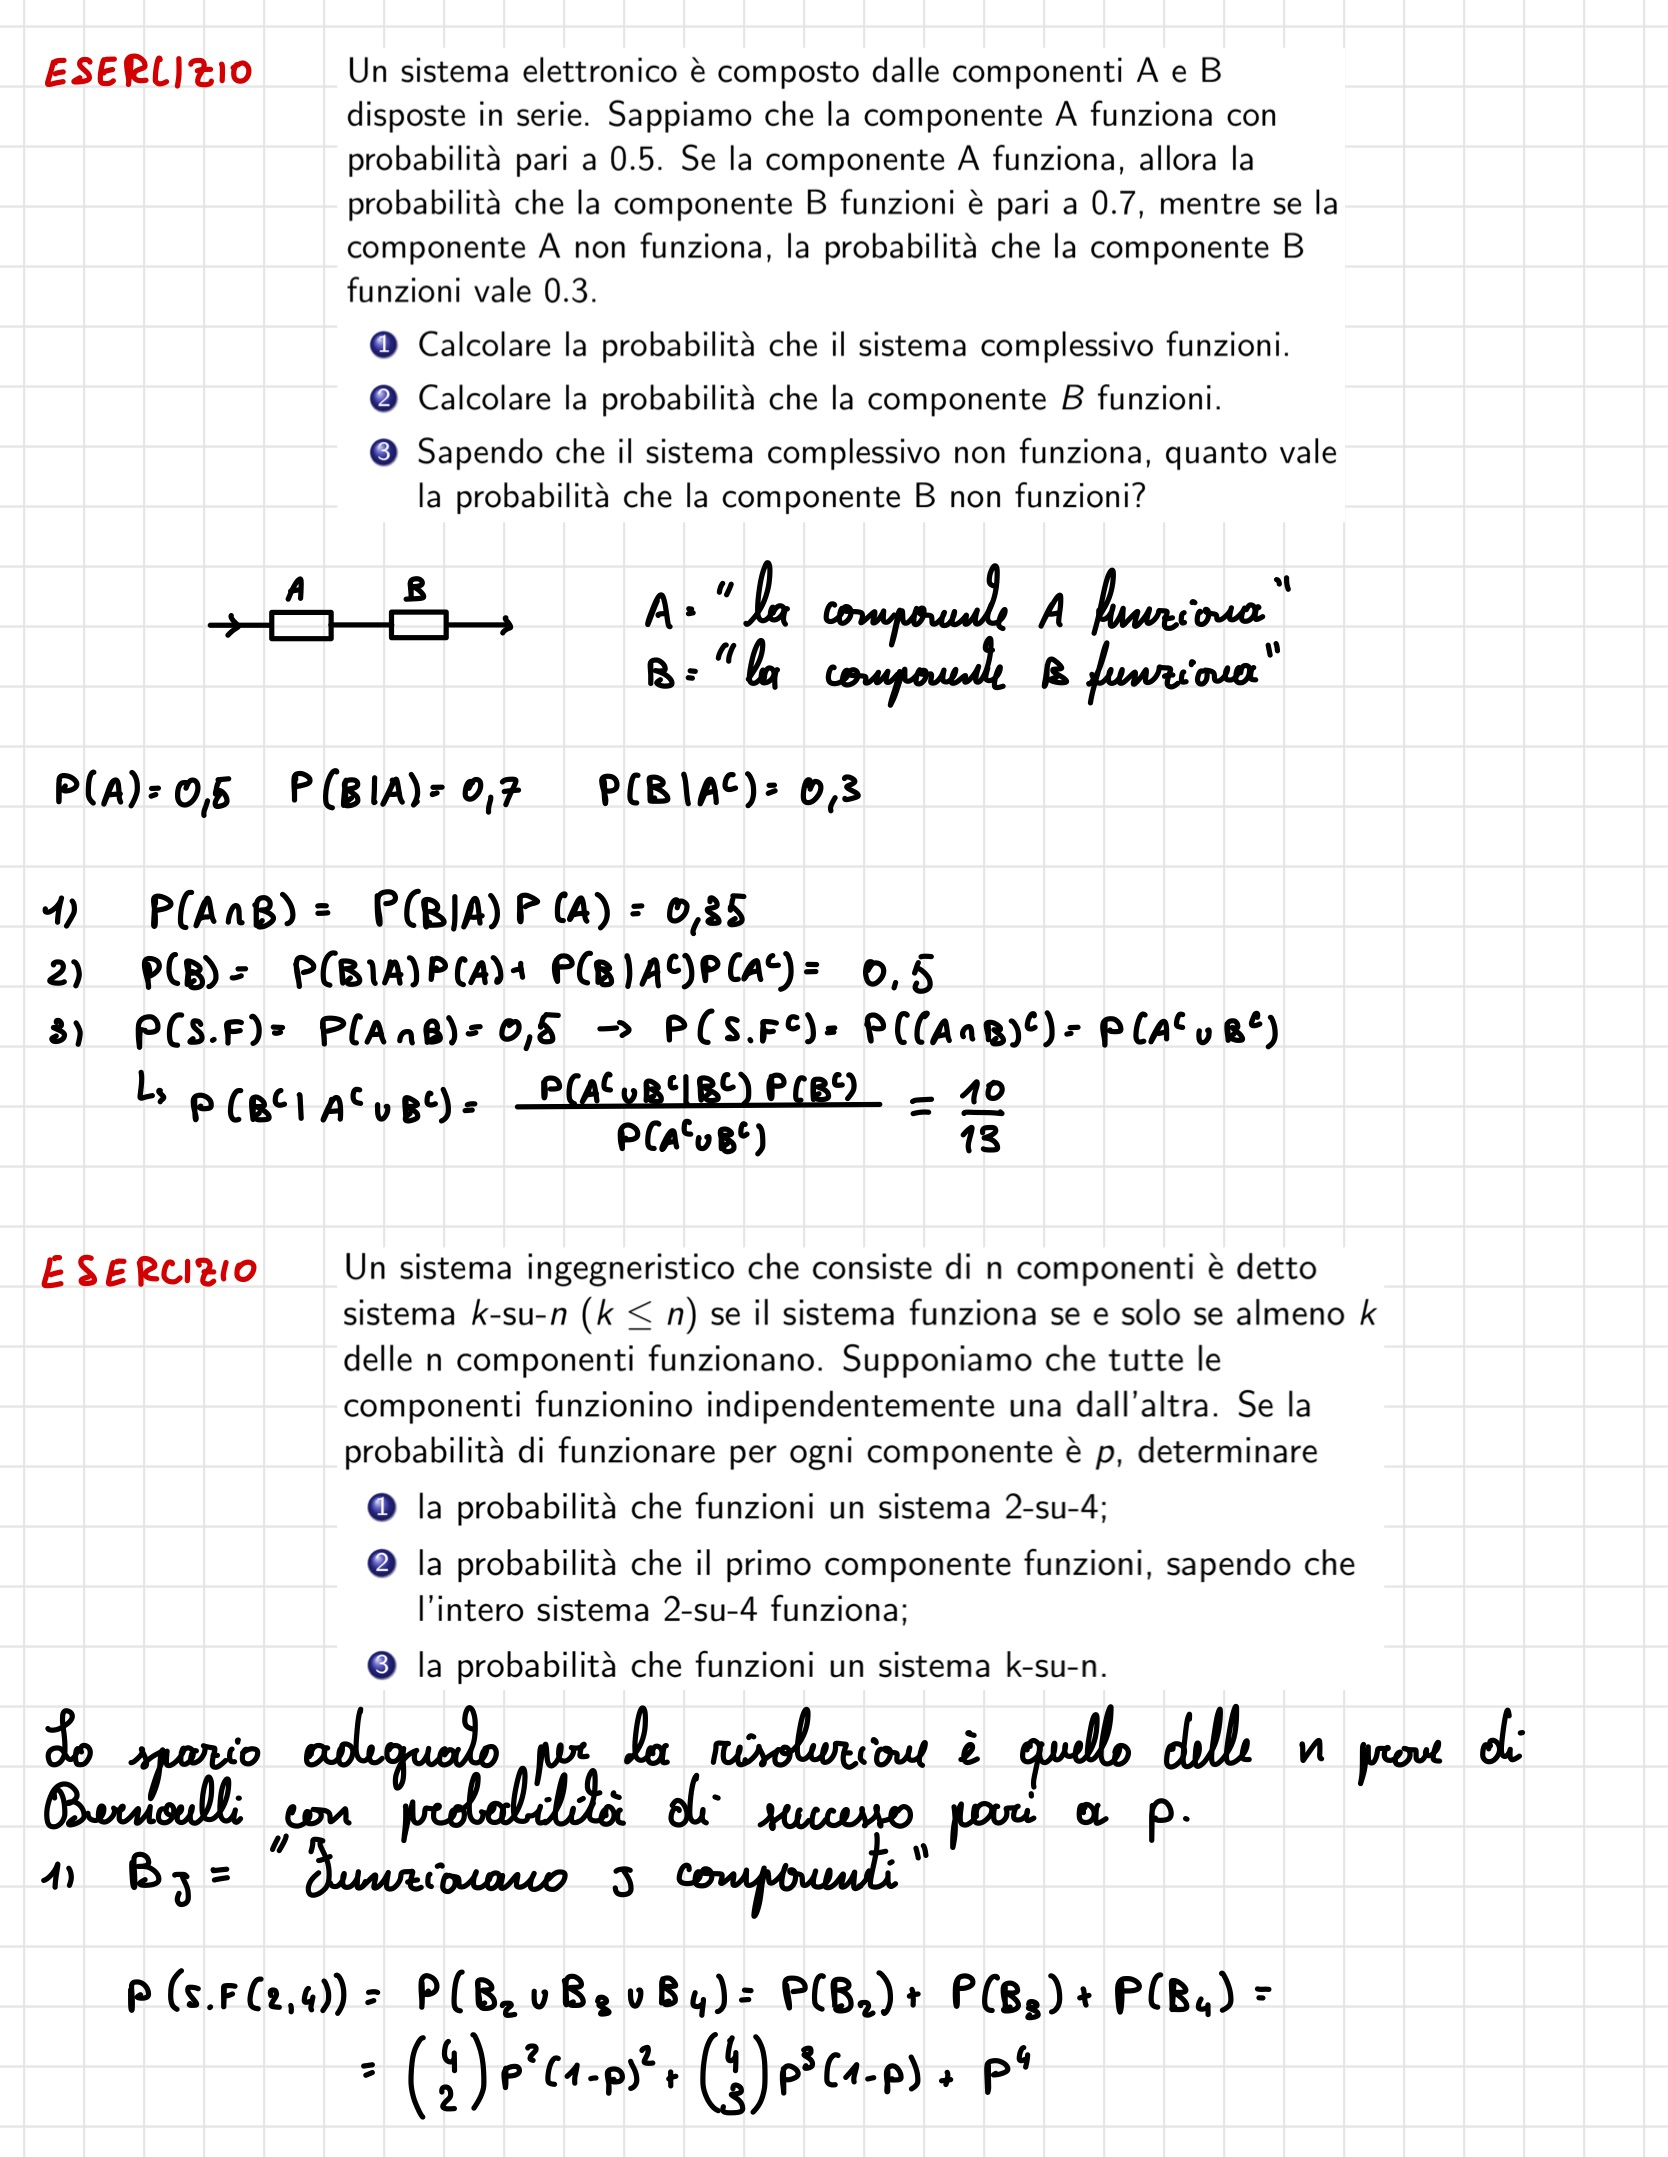 ESERCIZIO
Un sistema elettronico è composto dalle componenti A e B
disposte in serie. Sappiamo che la componente A funziona con
probabilità pari a 0.5. Se la componente A funziona, allora la
probabilità che la componente B funzioni è pari a 0.7, mentre se la
componente A non funziona, la probabilità che la componente B
funzioni vale 0.3.
1 Calcolare la probabilità che il sistema complessivo funzioni.
2 Calcolare la probabilità che la componente B funzioni.
3 Sapendo che il sistema complessivo non funziona, quanto vale
la probabilità che la componente B non funzioni?
A B
A = "la componente A funziona"
B = "la componente B funziona"
P(A) = 0,5 P(B|A) = 0,7 P(B|Aᶜ) = 0,3
1) P(A∩B) = P(B|A) P(A) = 0,35
2) P(B) = P(B|A)P(A) + P(B|Aᶜ)P(Aᶜ) = 0.5
3) P(S.F) = P(A∩B) = 0,5 → P(S.Fᶜ) = P((A∩B)ᶜ) = P(Aᶜ∪Bᶜ)
↳ P(Bᶜ|Aᶜ∪Bᶜ) = P(Aᶜ∪Bᶜ|Bᶜ) P(Bᶜ) / P(Aᶜ∪Bᶜ) = 10/13
ESERCIZIO
Un sistema ingegneristico che consiste di n componenti è detto
sistema k-su-n (k ≤ n) se il sistema funziona se e solo se almeno k
delle n componenti funzionano. Supponiamo che tutte le
componenti funzionino indipendentemente una dall'altra. Se la
probabilità di funzionare per ogni componente è p, determinare
1 la probabilità che funzioni un sistema 2-su-4;
2 la probabilità che il primo componente funzioni, sapendo che
l'intero sistema 2-su-4 funziona;
3 la probabilità che funzioni un sistema k-su-n.
Lo spazio adeguato per la risoluzione è quello delle n prove di
Bernoulli con probabilità di successo pari a p.
1) Bj = "funzionano j componenti"
P(S.F(2,4)) = P(B₂ ∪ B₃ ∪ B₄) = P(B₂) + P(B₃) + P(B₄) =
= (4 2) p²(1-p)² + (4 3) p³(1-p) + p⁴